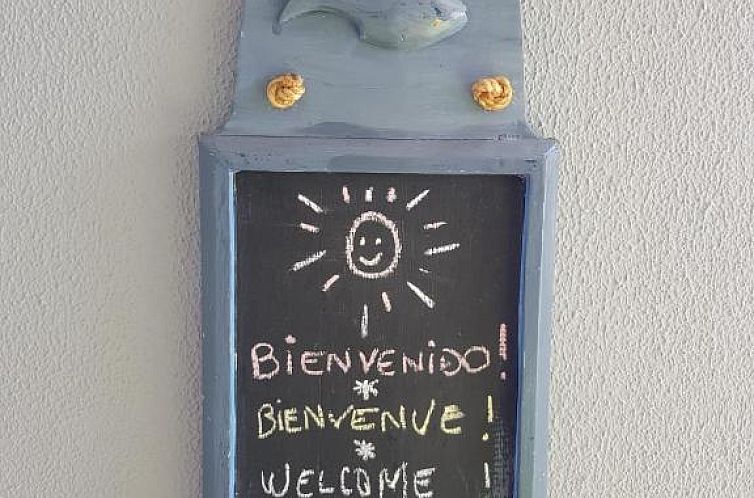 BIENVENIDO!
*
BIENVENUE!
*
WELCOME !